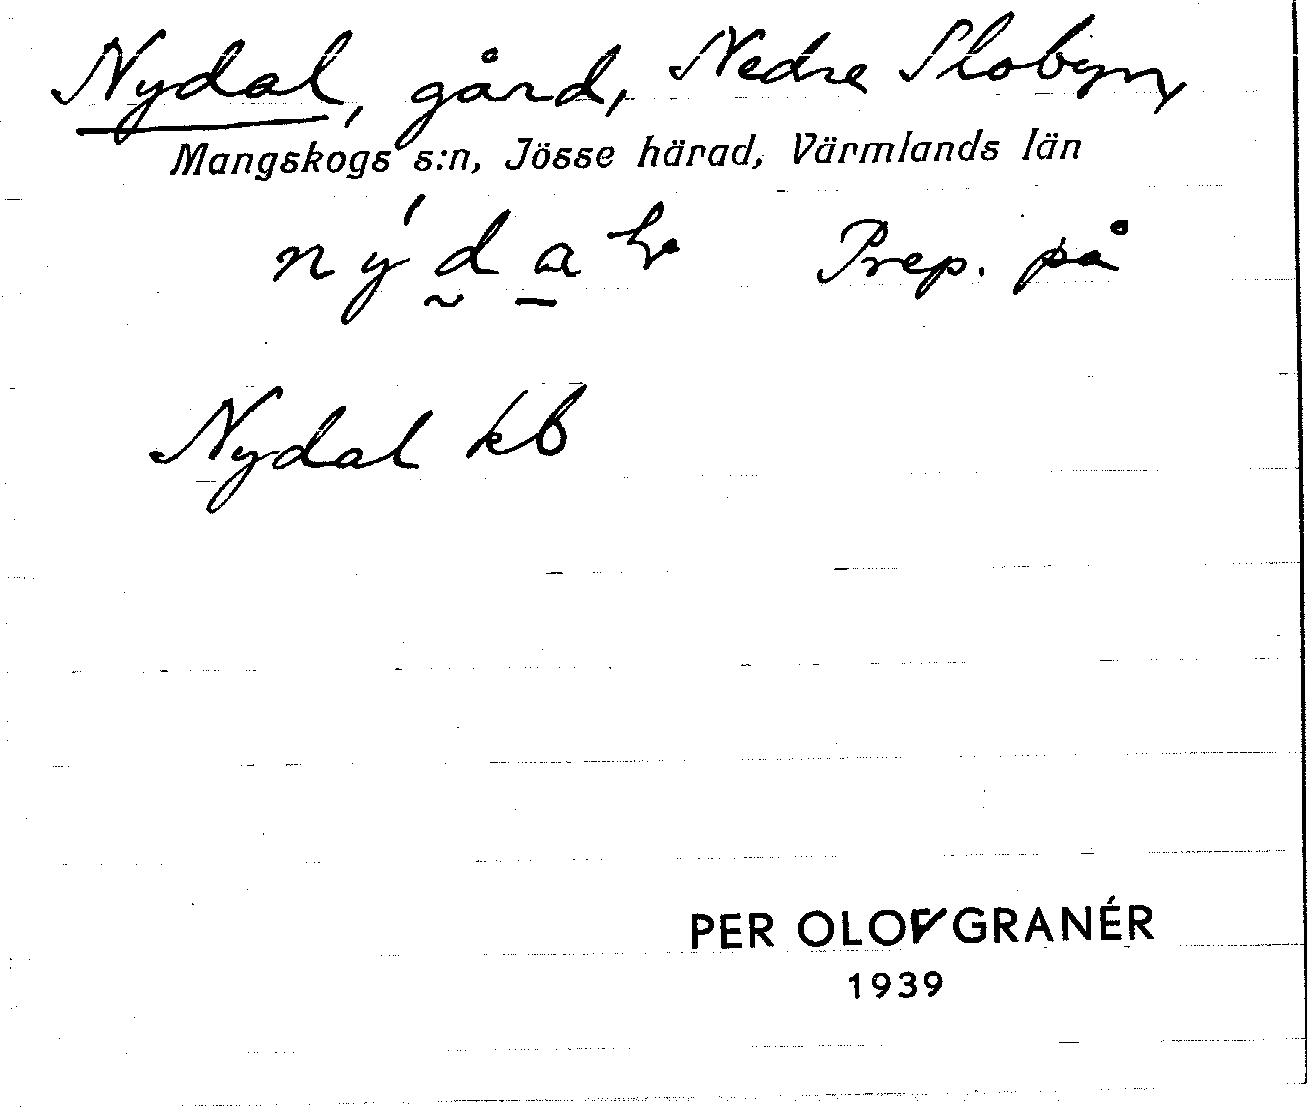 Nydal, gård, Nedre Slobyn,
Mangskogs s:n, Jösse härad, Värmlands län
Prep. på
Nydal kb
PER OLOF GRANÉR
1939